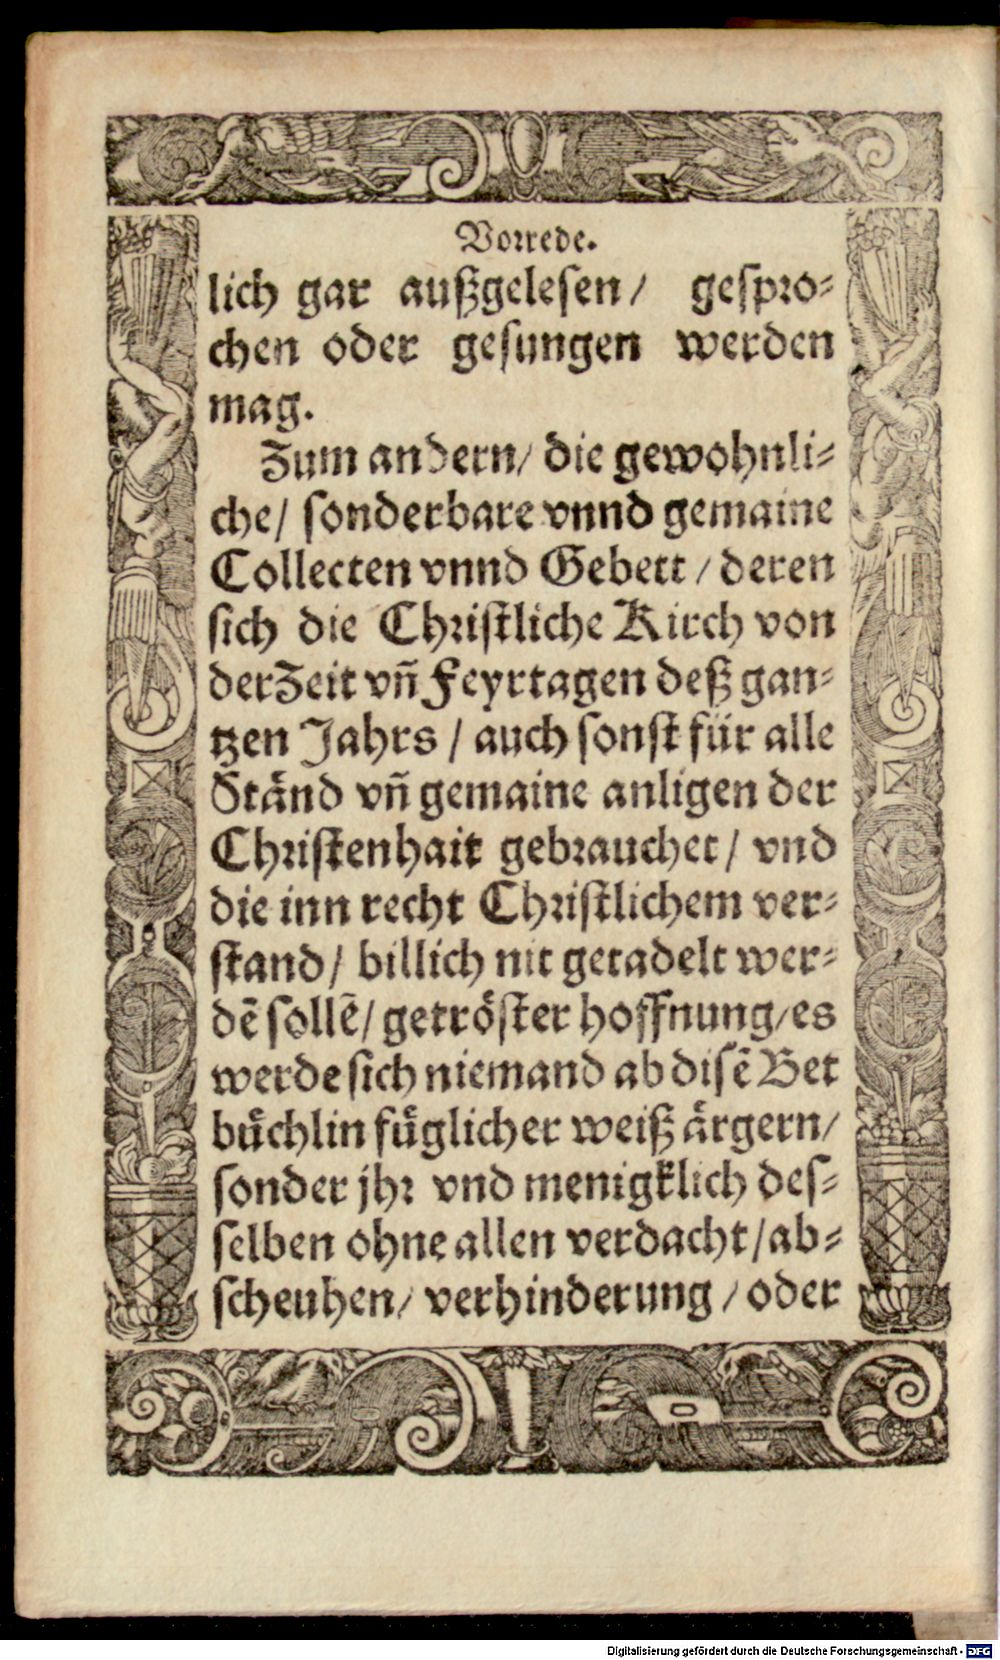 Vorrede.
lich gar außgelesen/ gespro-
chen oder gesungen werden
mag.
Zum andern/ die gewohnli-
che/ sonderbare vnnd gemaine
Collecten vnnd Gebett/ deren
sich die Christliche Kirch von
der Zeit vn̄ Feyrtagen deß gan-
tzen Jahrs/ auch sonst für alle
Stånd vn̄ gemaine anligen der
Christenhait gebrauchet/ vnd
die inn recht Christlichem ver-
stand/ billich nit getadelt wer-
dē sollē/ getröster hoffnung/ es
werde sich niemand ab disē Bet
bůchlin fůglicher weiß årgern/
sonder jhr vnd menigklich des-
selben ohne allen verdacht/ ab-
scheuhen/ verhinderung/ oder
Digitalisierung gefördert durch die Deutsche Forschungsgemeinschaft - DFG